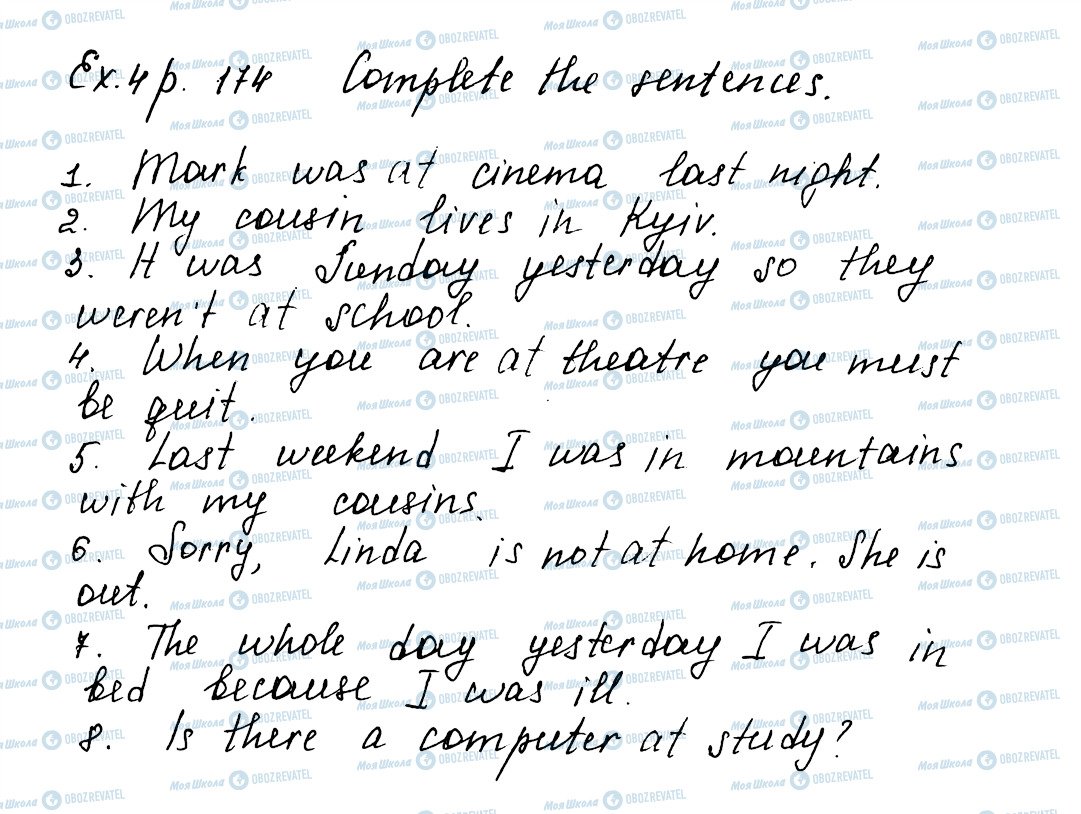 Ex. 4 p. 174 Complete the sentences.
1. Mark was at cinema last night.
2. My cousin lives in Kyiv.
3. It was Sunday yesterday so they
weren't at school.
4. When you are at theatre you must
be quit.
5. Last weekend I was in mountains
with my cousins.
6. Sorry, Linda is not at home. She is
out.
7. The whole day yesterday I was in
bed because I was ill.
8. Is there a computer at study?